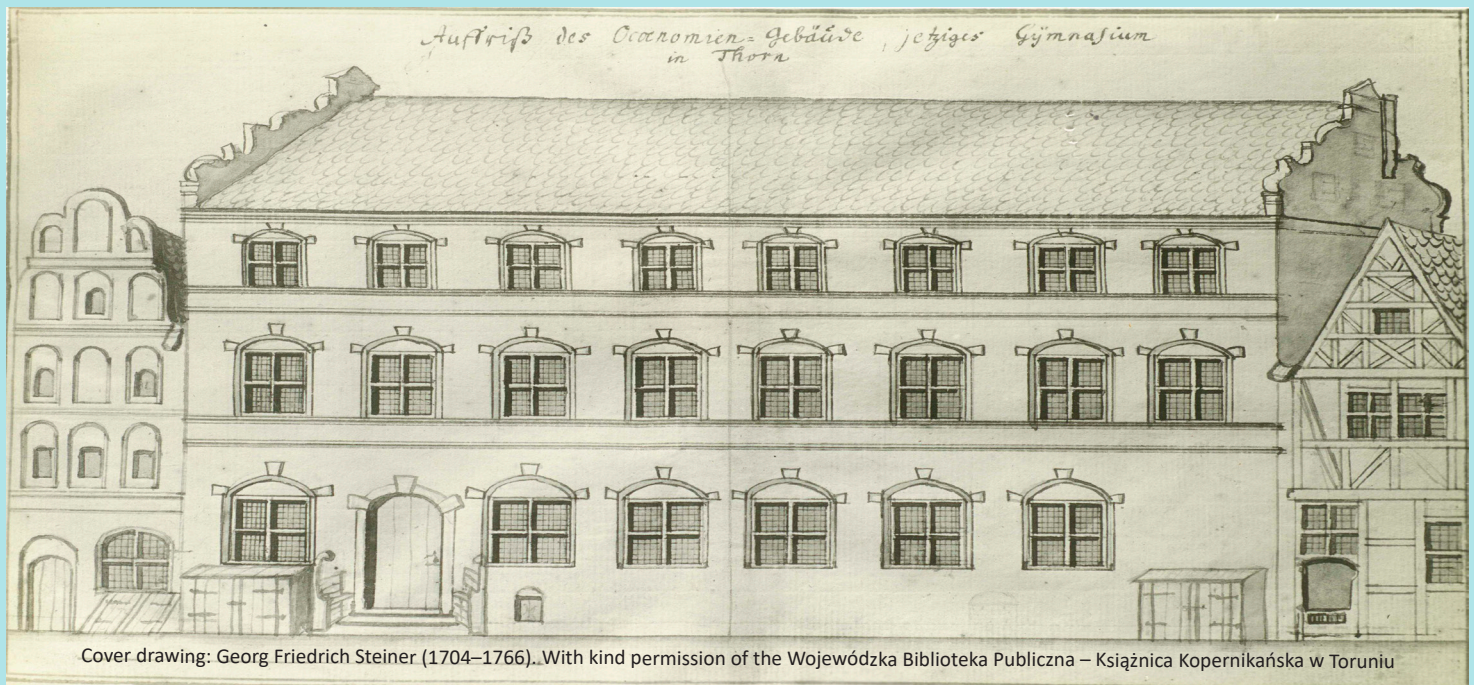 Auffriß des Oeconomien=Gebäude, jetziges Gÿmnasium
in Thorn
Cover drawing: Georg Friedrich Steiner (1704–1766). With kind permission of the Wojewódzka Biblioteka Publiczna – Książnica Kopernikańska w Toruniu